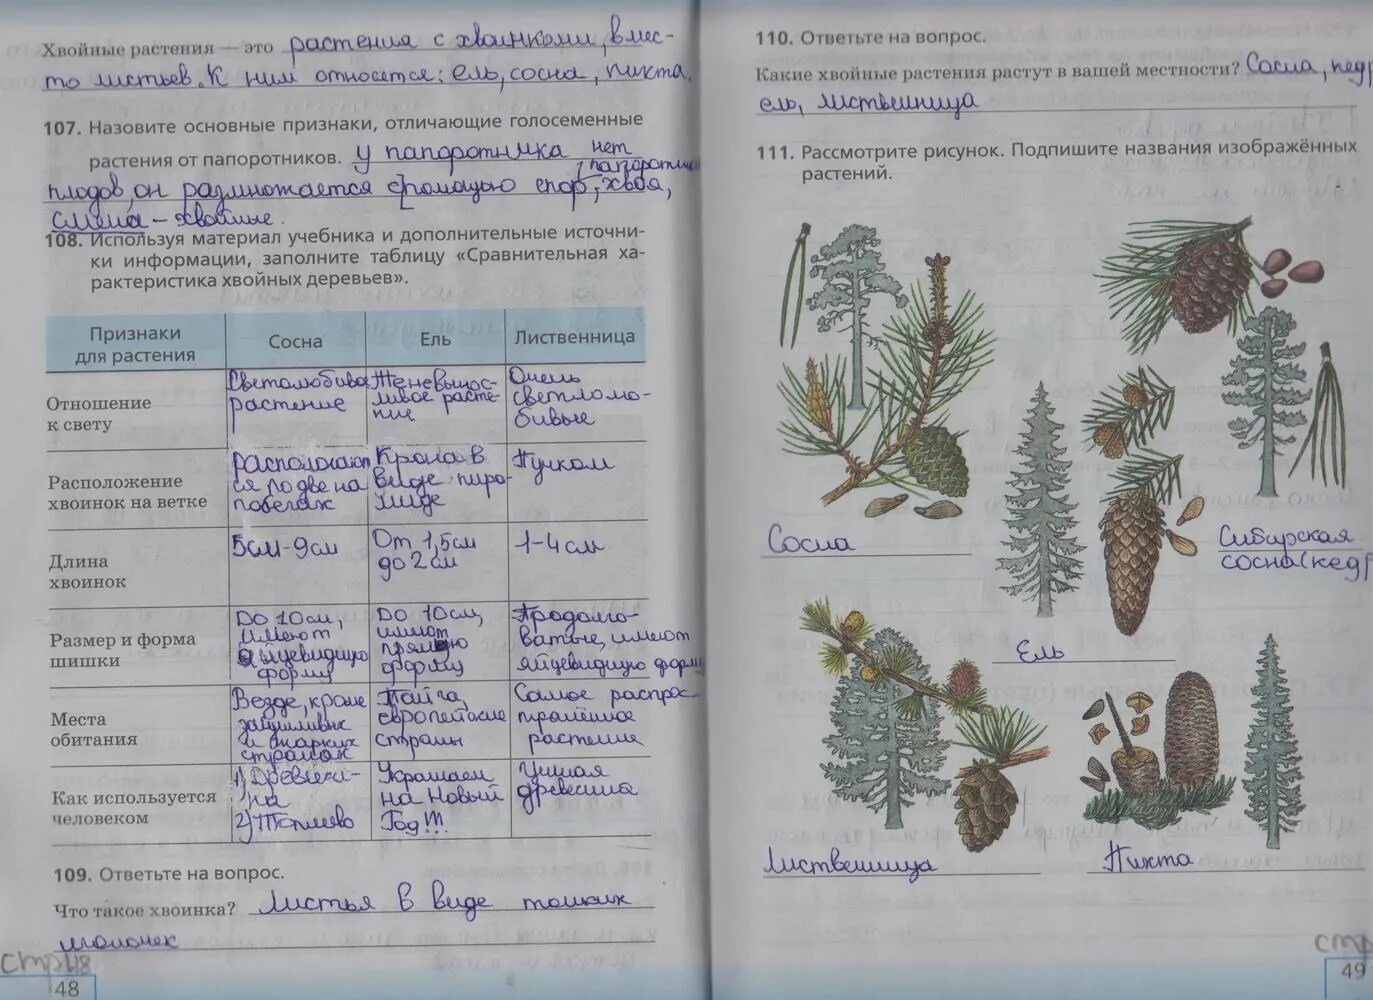 Хвойные растения — это растения с хвоинками, вмес-
то листьев. К ним относятся: ель, сосна, пихта.
107. Назовите основные признаки, отличающие голосеменные
растения от папоротников. у папоротника нет
плодов, он размножается с помощью спор, хвоя,
семена – хвойные.
108. Используя материал учебника и дополнительные источни-
ки информации, заполните таблицу «Сравнительная ха-
рактеристика хвойных деревьев».
Признаки
для растения
Сосна
Ель
Лиственница
Отношение
к свету
Светолюбива
растение
Теневынос-
ливое расте-
ние
Очень
светлолю-
бивые
Расположение
хвоинок на ветке
располагают
ся по две на
побегах
Крона в
виде пиро-
миде
Пучком
Длина
хвоинок
5см-9см
От 1,5см
до 2см
1-4 см
Размер и форма
шишки
До 10см,
имеют
яйцевидную
форму
До 10см,
имеют
прямую
форму
Продолго-
ватые, имеют
яйцевидную форму
Места
обитания
Везде, кроме
засушливых
и жарких
странах
Тайга,
европейские
страны
Самое распрос-
транённое
растение
Как используется
человеком
1) Древеси-
на
2) Топливо
Украшаем
на Новый
Год!!!
Ценная
древесина
109. Ответьте на вопрос.
Что такое хвоинка? Листья в виде тонких
иголочек
стр48
48
110. Ответьте на вопрос.
Какие хвойные растения растут в вашей местности? Сосна, кедр
ель, лиственница
111. Рассмотрите рисунок. Подпишите названия изображённых
растений.
Сосна
Сибирская
сосна(кедр
Ель
Лиственница
Пихта
стр
49